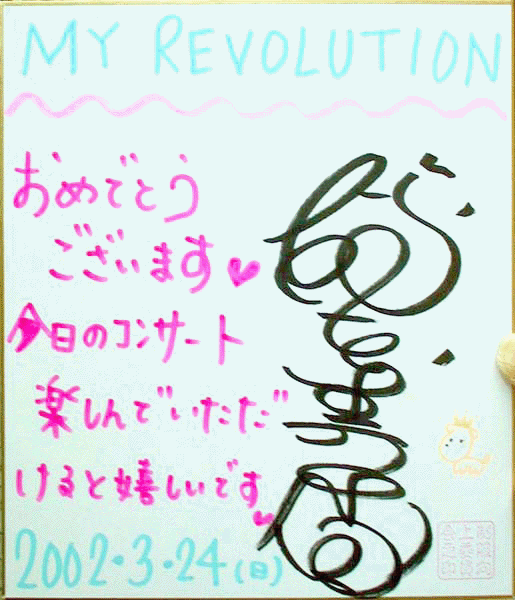 MY REVOLUTION
おめでとう
ございます♥
今日のコンサート
楽しんでいただ
けると嬉しいです♥
2002・3・24(日)